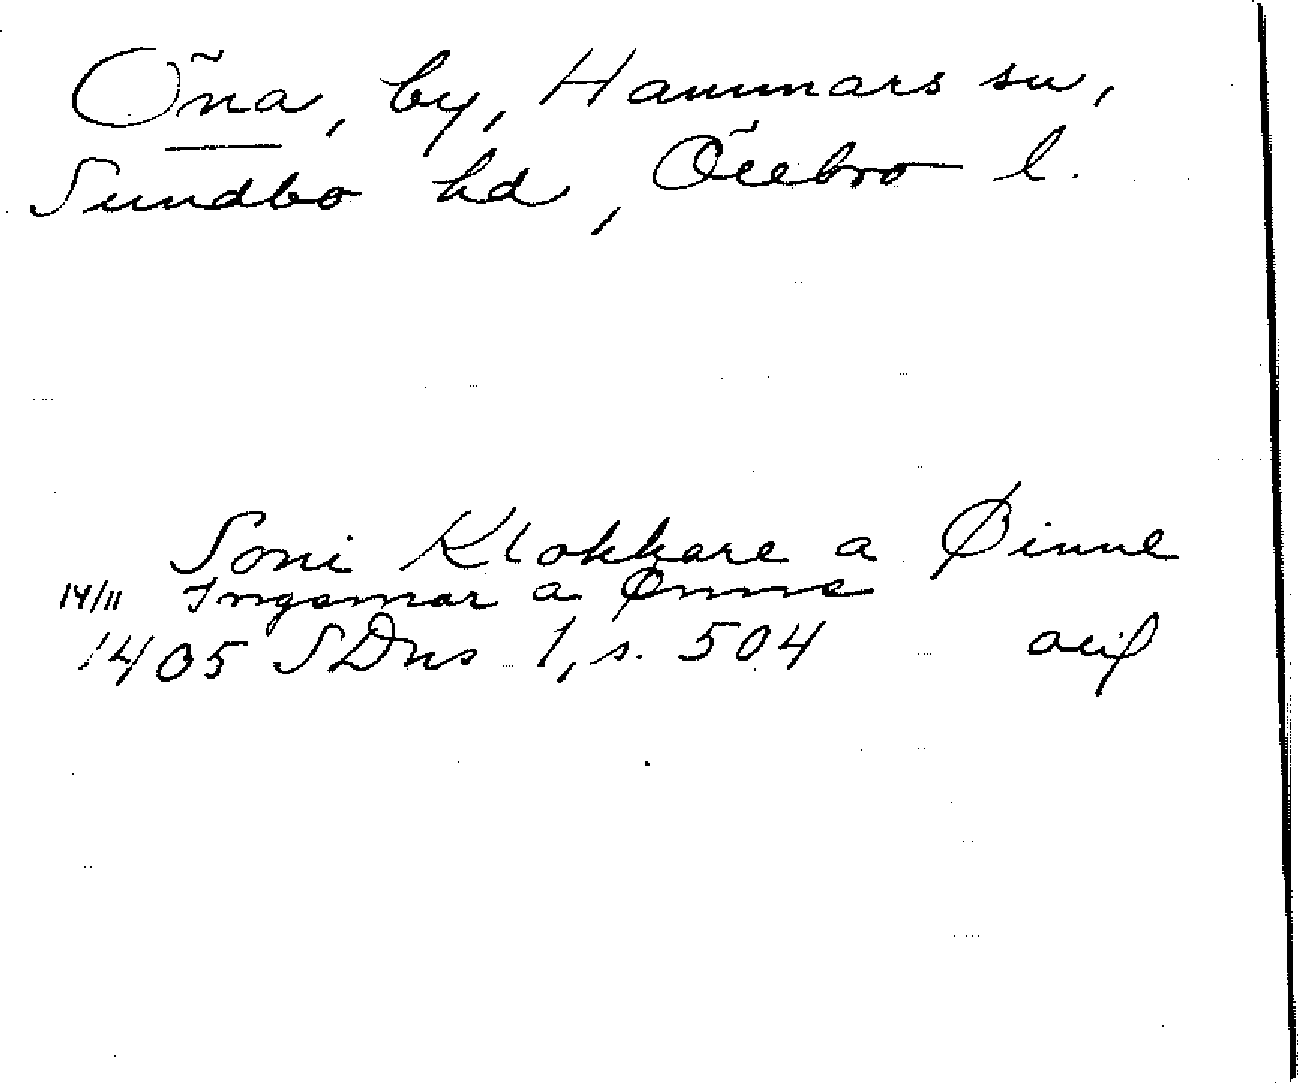 Öna, by, Hammars sn,
Sundbo hd, Örebro l.
Soni Klokkare a Øinne
14/11 Ingemar a Ønne
1405 SDns 1, s. 504 orig